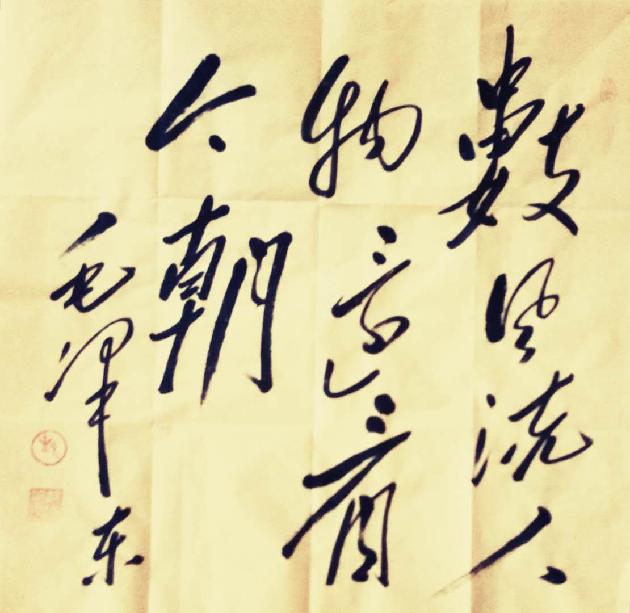 數風流人
物還看
今朝
毛澤東